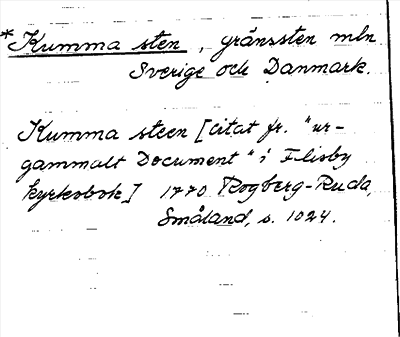 *Kumma sten, gränssten mln
Sverige och Danmark.
Kumma steen [citat fr. "ur-
gammalt Document" i Flisby
kyrkobok] 1770 Rogberg-Ruda,
Småland, s. 1024.